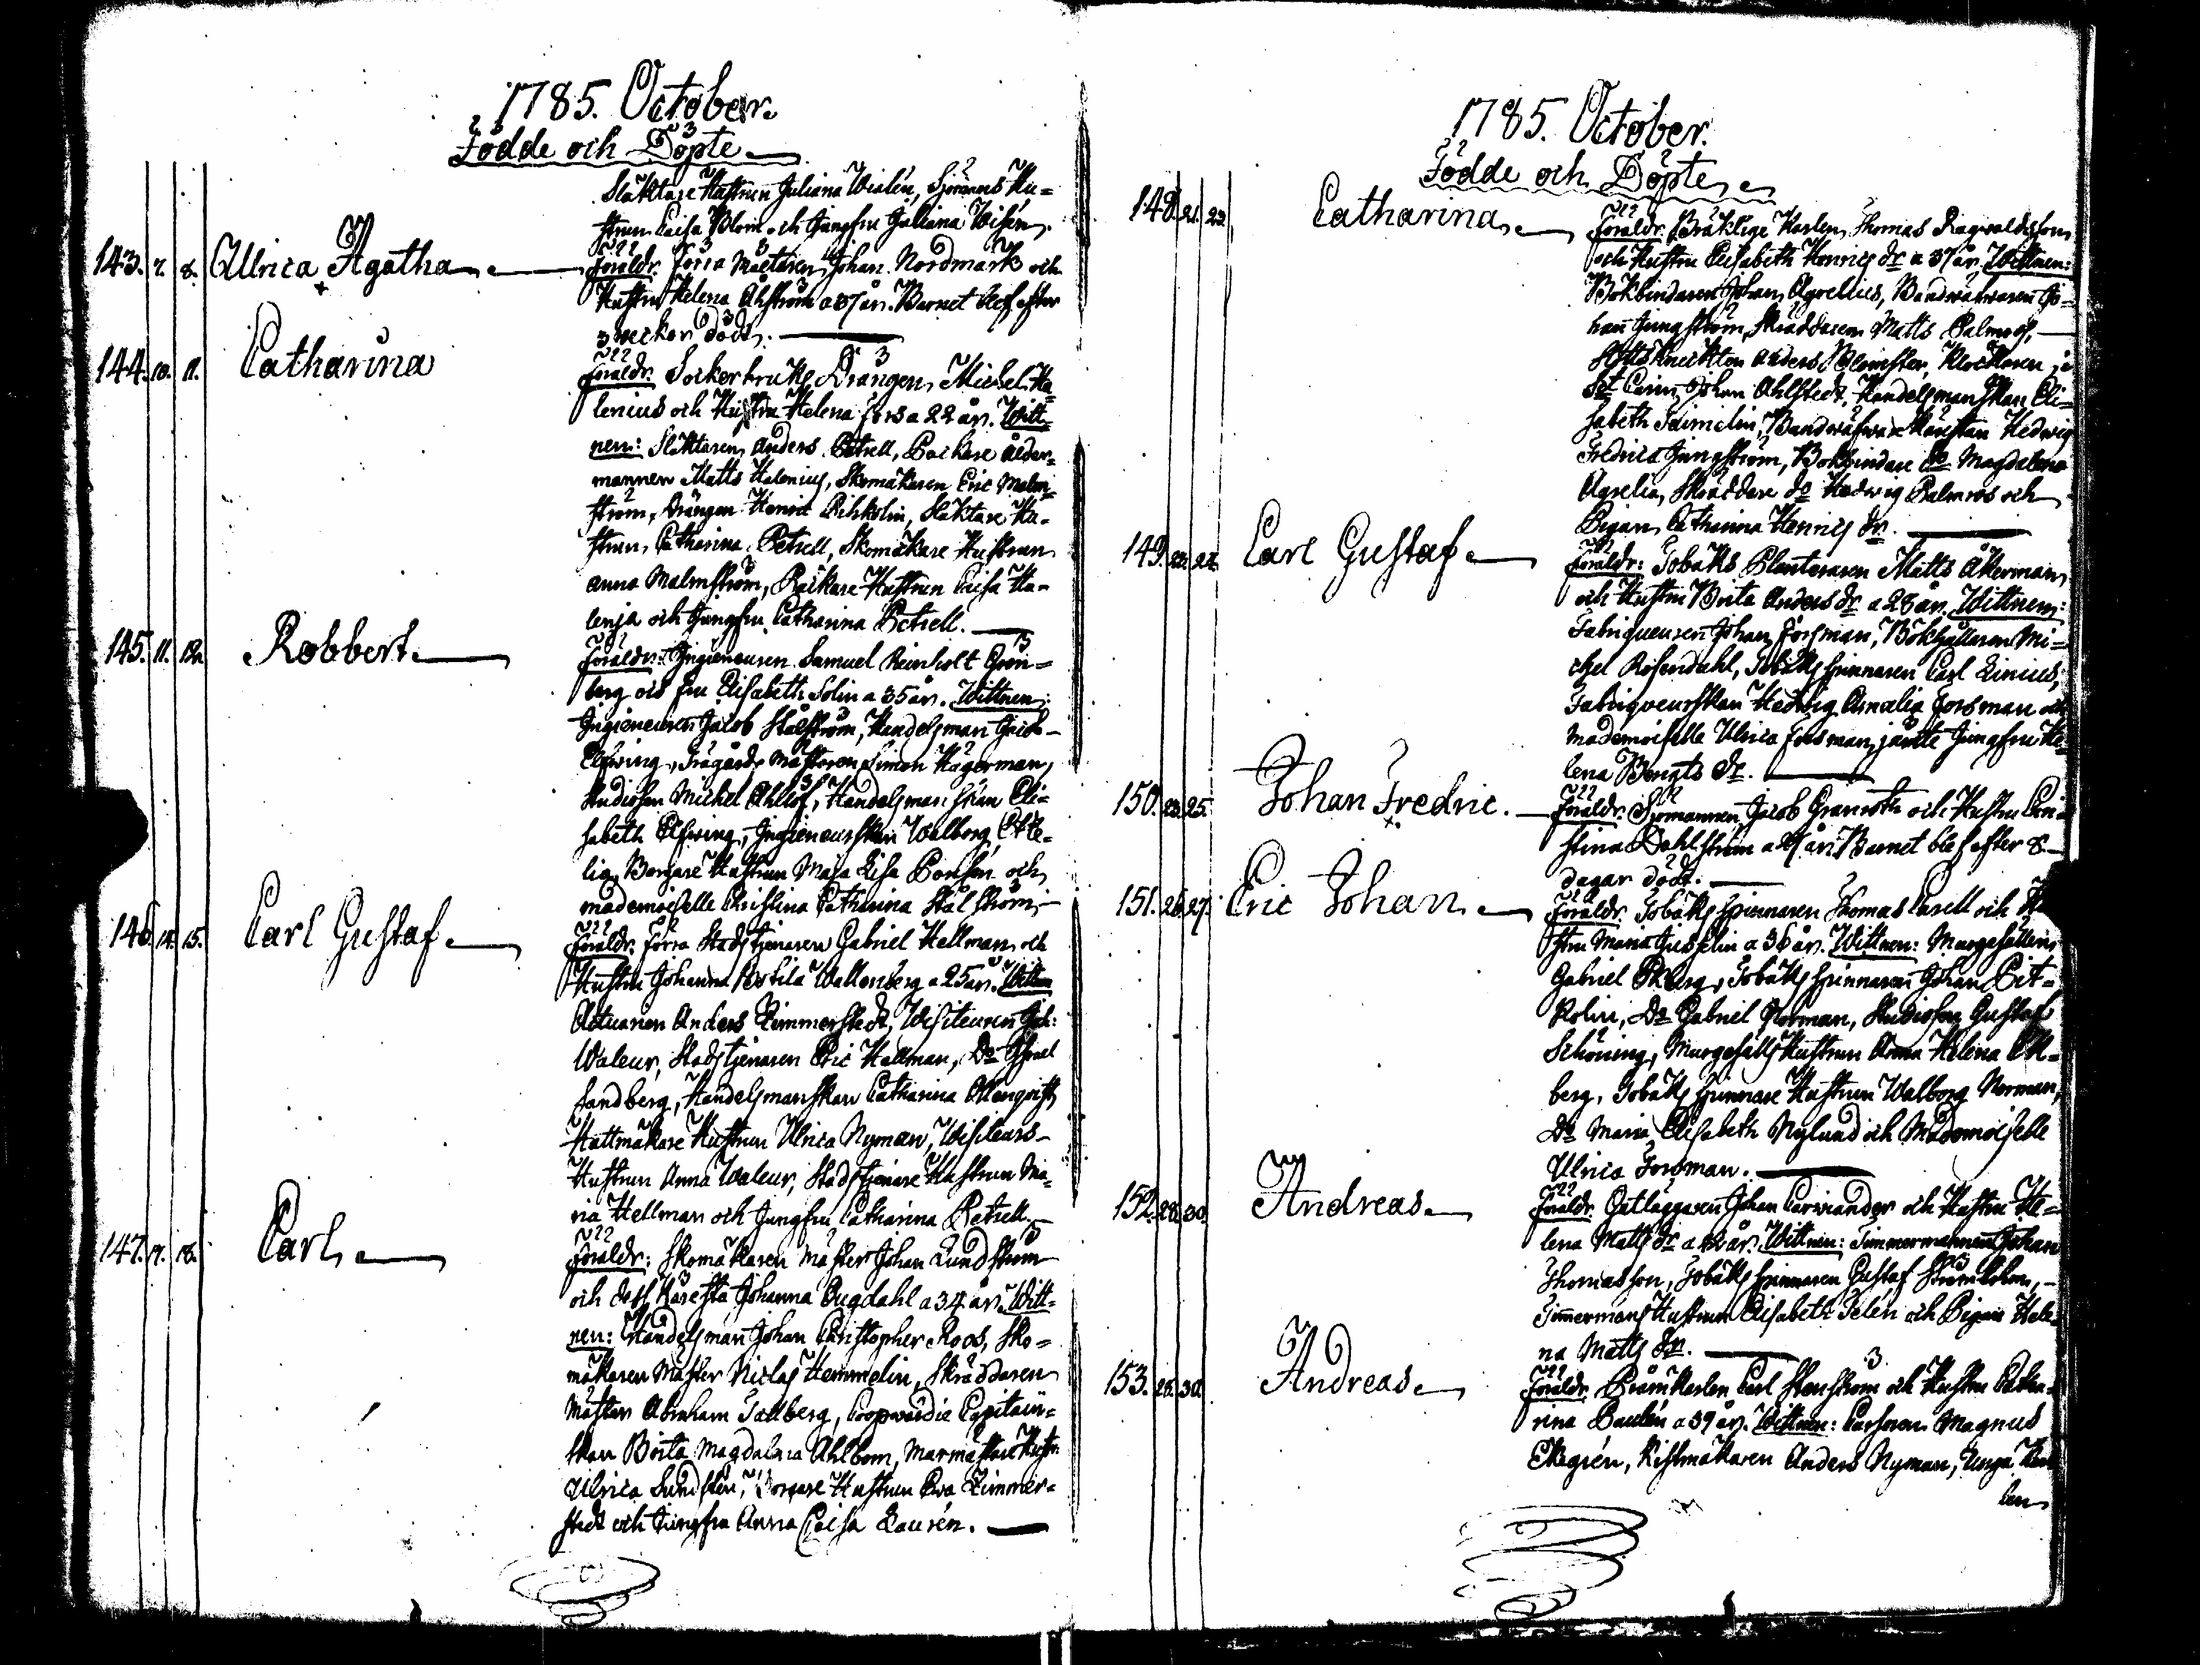 1785. October.
Födde och Döpte
Slaktare Hustrun Juliana Wialén, Sjömans Hu=
strun Caisa Blom och Jungfru Juliana Wisén.
143. 7. 8. Ulrica Agatha Föräldr. Förra Mältaren Johan Nordmark och
Hustru Helena Åhström a 37 år. Barnet blef efter
3 weckor dödt.
144. 10. 11. Catharina
Föräldr. Sockerbruks Drängen Michel Ha=
lenius och Hustru Helena Fors a 22 år. Witt=
nen: Slaktaren Anders Petrell, Backare Ålder=
mannen Matts Halenius, Skomakaren Eric Malm=
ström, Drängen Henric Pihkolin, Slaktare Hu=
strun Catharina Petrell, Skomakare Hustrun
Anna Malmström, Backare Hustrun Caisa Ha=
lenja och Jungfru Catharina Petrell.
145. 11. 12. Robbert Föräldr: Ingieneuren Samuel Reinholt Grön=
berg och fru Elisabeth Solin a 35 år. Wittnen:
Ingieneuren Jacob Stålström, Handelsman Jacob
Elfwing, Trägårds Mästaren Simon Hagerman,
Studiosen Michel Ahllöf, Handelsmanskan Eli=
sabeth Elfwing, Ingieneurskan Walborg
Borgare Hustrun Maja Lisa Bonsén och
mademoiselle Christina Catharina Stålström.
146. 14. 15. Carl Gustaf Föräldr. Förra Stads tjenaren Gabriel Hellman och
Hustru Johanna Wallenberg a 25 år. Wittnen
Actuarien Anders Zimmerstedt, Visiteuren Joh:
Waleur, Stads tjenaren Eric Hellman, Do Israel
Sandberg, Handelsmanskan Catharina Allenqvist,
Hattmakare Hustrun Ulrica Nyman, Visiteurs
Hustrun Anna Waleur, Stads tjenare Hustrun Ma=
ria Hellman och Jungfru Catharina Petrell.
147. 17. 18. Carl Föräldr: Skomakaren Mäster Johan Lundström
och dess Käresta Johanna Bugdahl a 34 år. Witt=
nen: Handelsman Johan Christopher Roos, Sko=
makaren Mäster Niclas Hemmelin, Skräddaren
Mäster Abraham Tallberg, Coopwardie Capitain=
skan Brita Magdalena Ahlbom, Murmästare Hustr.
Ulrica Sundstén, Borgare Hustrun Ewa Zimmer=
stedt och Jungfru Anna Caisa Laurén.
1785. October.
Födde och Döpte
148. 21. 23. Catharina Föräldr. Bräcklige Karlen Thomas Ragwaldsson
och Hustru Elisabeth Henrics dr a 37 år. Wittnen:
Bokbindaren Johan Agrelius, Bandwäfwaren Jo=
han Ljungström, Skräddaren Matts Palmros,
Slotts Knekten Anders Blomster, Klockaren
St Carin Johan Ahlstedt, Handelsmanskan Eli=
sabeth Taimelin, Bandwäfware Kärestan Hedwig
Fredrica Ljungström, Bokbindare Do Magdalena
Agrelia, Skräddare do Hedwig Palmros och
Pigan Catharina Henrics dr.
149. 22. 24. Carl Gustaf Föräldr: Tobaks Planteraren Matts Åkerman
och Hustru Brita Anders dr a 28 år. Wittnen:
Fabriqueuren Johan Forsman, Bokhållaren Mi=
chel Rosendahl, Tobaks Spinnaren Carl Linius,
Fabriqveurskan Hedwig Amalia Forsman och
Mademoiselle Ulrica Forsman, jämte Jungfru He=
lena Bengts dr.
150. 23. 25. Johan Fredric. Föräldr. Sjömannen Jacob Granroth och Hustru Chri=
stina Dahlström a år. Barnet blef efter 8
dagar dödt.
151. 26. 27. Eric Johan Föräldr. Tobaks Spinnaren Thomas Casell och Hu=
stru Maria Jusselin a 36 år. Wittnen: Murgesällen
Gabriel Ekberg, Tobaks Spinnaren Johan Pit=
kolin, Do Gabriel Norman, Studiosen Gustaf
Schöning, Murgesälls Hustrun Anna Helena Ek=
berg, Tobaks Spinnare Hustrun Walborg Norman,
Do Maria Elisabeth Nylund och Mademoiselle
Ulrica Forsman.
152. 28. 30. Andreas Föräldr. Gatläggaren Johan Carviander och Hustru He=
lena Matts dr a 42 år. Wittnen: Timmermannen Johan
Thomasson, Tobaks Spinnaren Gustaf Strömbohm,
Timmermans Hustrun Elisabeth Telén och Pigan Hele=
na Matts dr.
153. 28. 30. Andreas Föräldr. Pråmkarlen Carl Stenström och Hustru Catha=
rina Paulén a 39 år. Wittnen: Carlsson Magnus
Ekegrén, Kistmakaren Anders Nyman, Unga Kar=
len